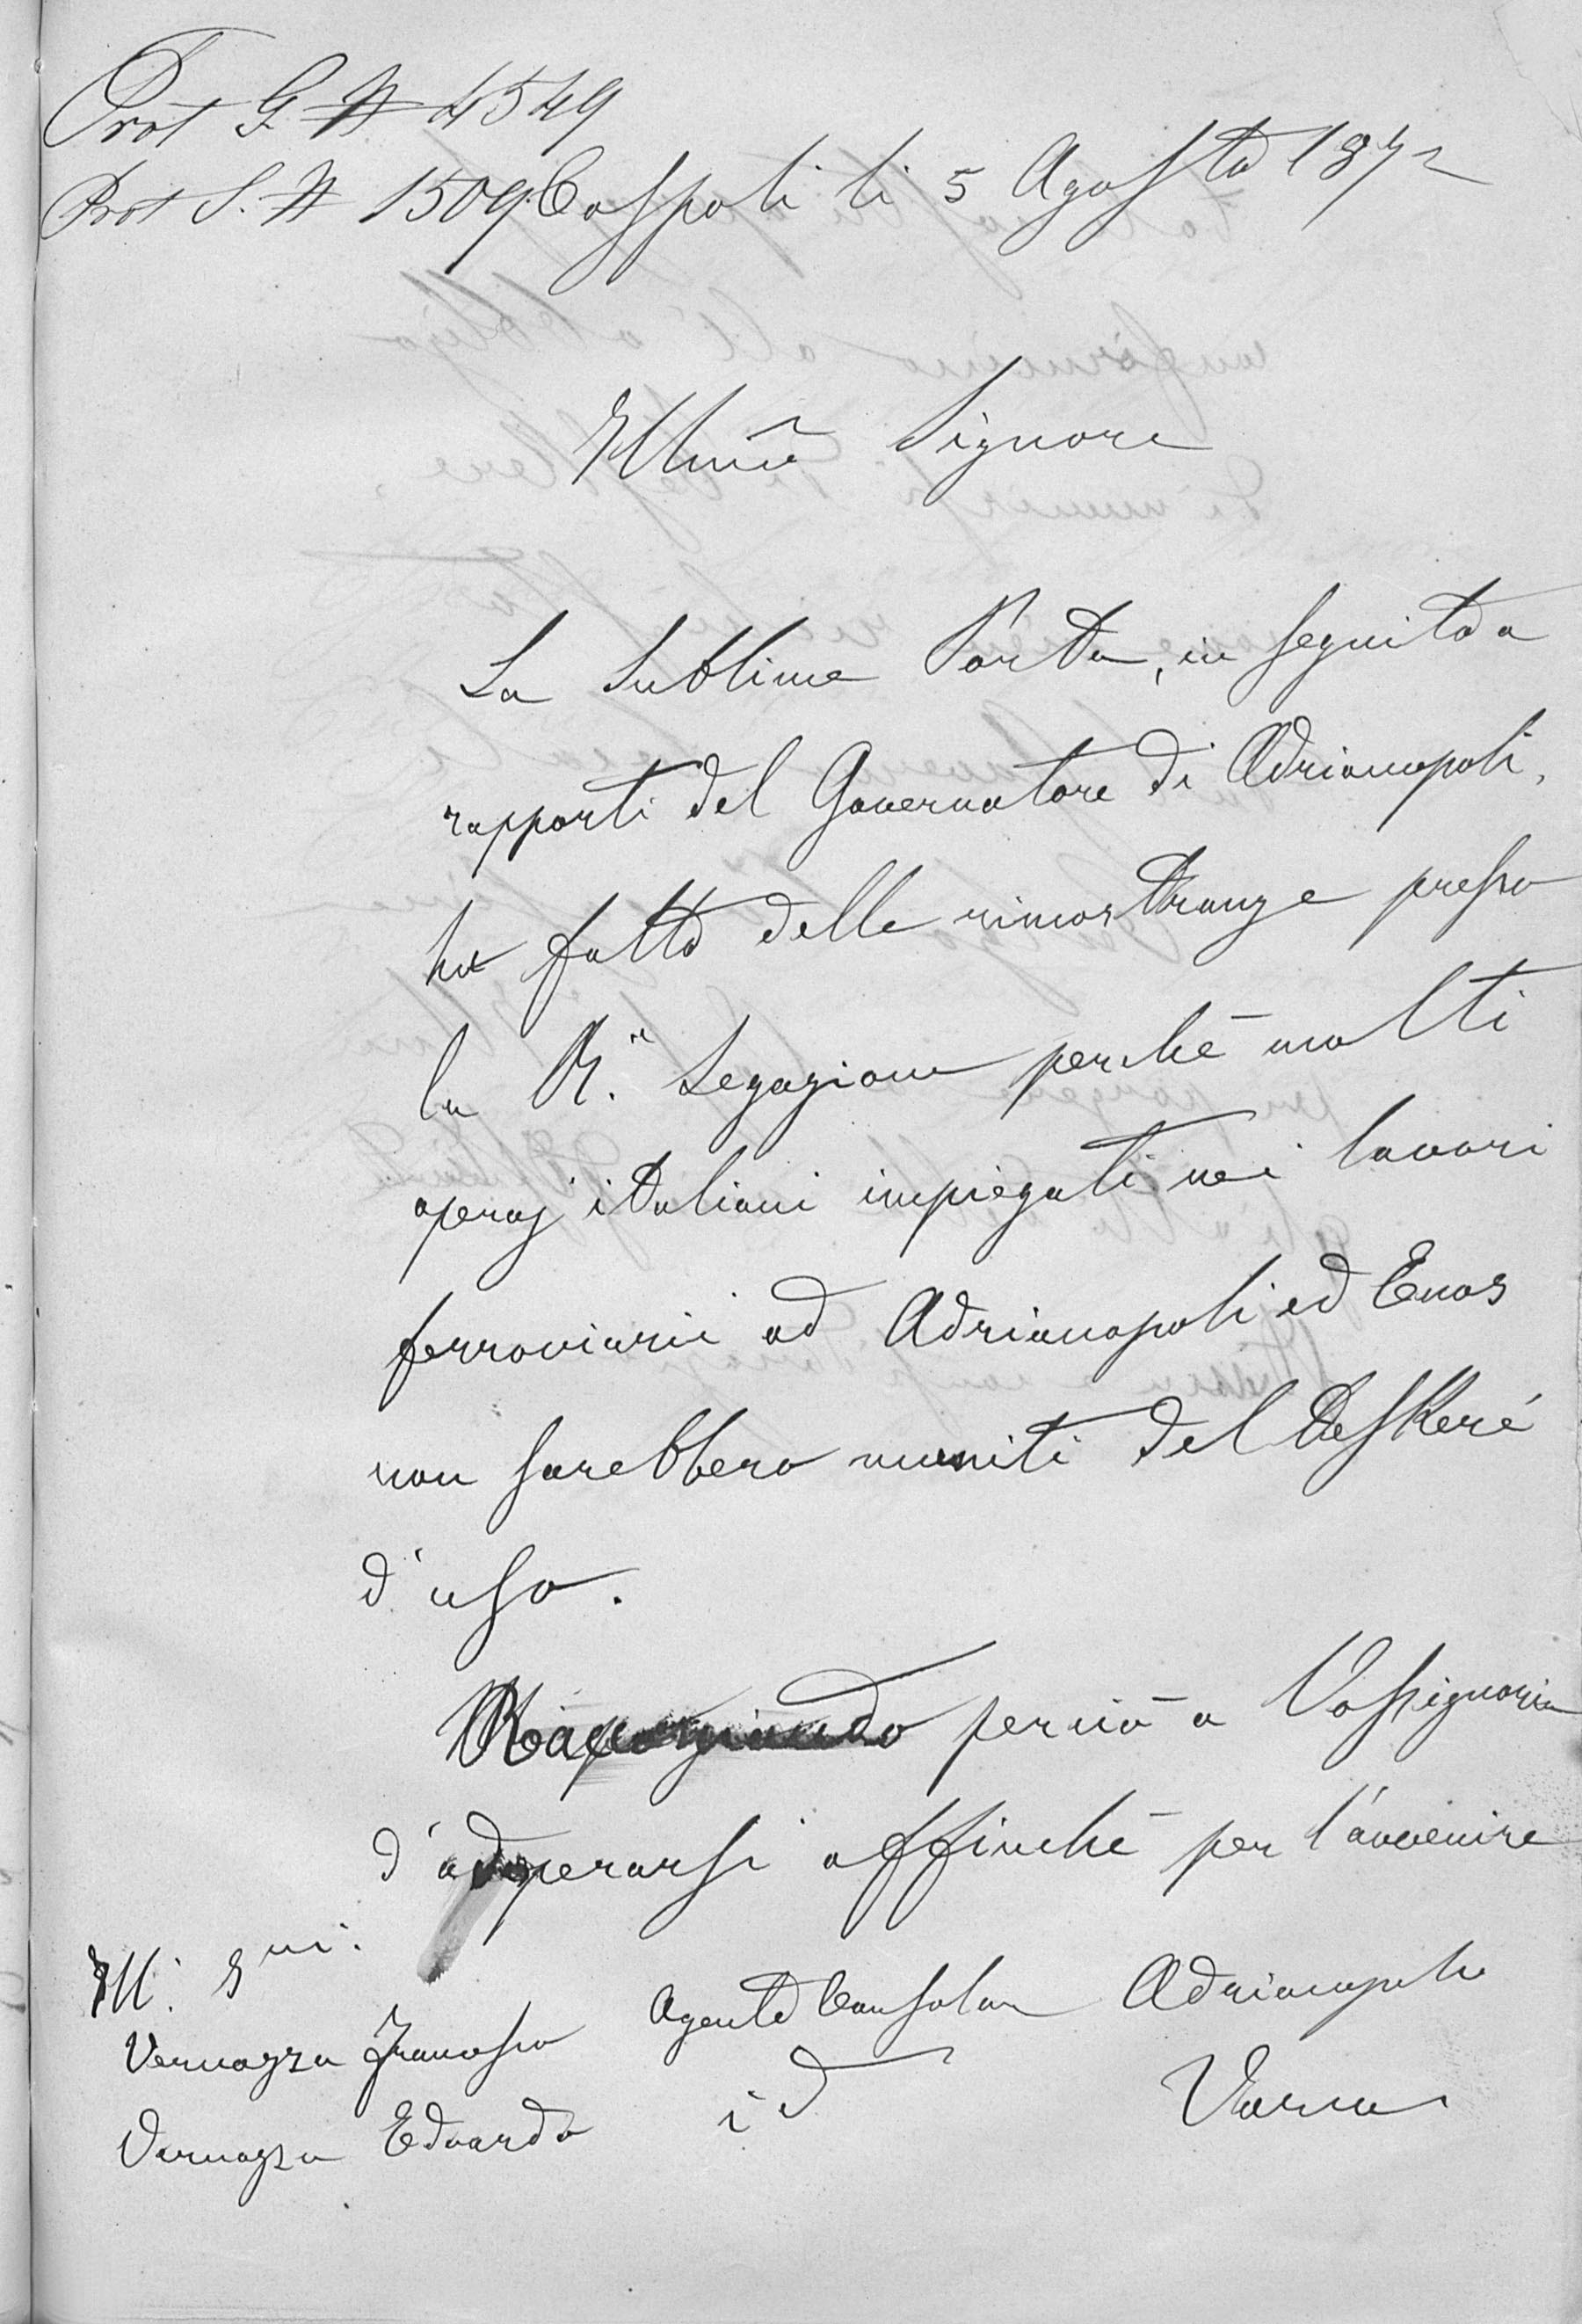 Prot G. N 4549
Prot S. N 1509. Cospoli li 5 Agosto 1872
Illmo Signore
La Sublime Porta, in seguito a
rapporti del Governatore di Adrianopoli,
ha fatto delle rimostranze presso
la R.a Legazione perchè molti
operaj italiani impiegati nei lavori
ferroviarii ad Adrianopoli ed Enos
non sarebbero muniti del Teskeré
d'uso.
perciò a Vossignoria
d'adoperarsi affinchè per l'avvenire
Ill. Sri.
Vernazza Francesco Agente Consolare Adrianopoli
Vernazza Edoardo id Varna